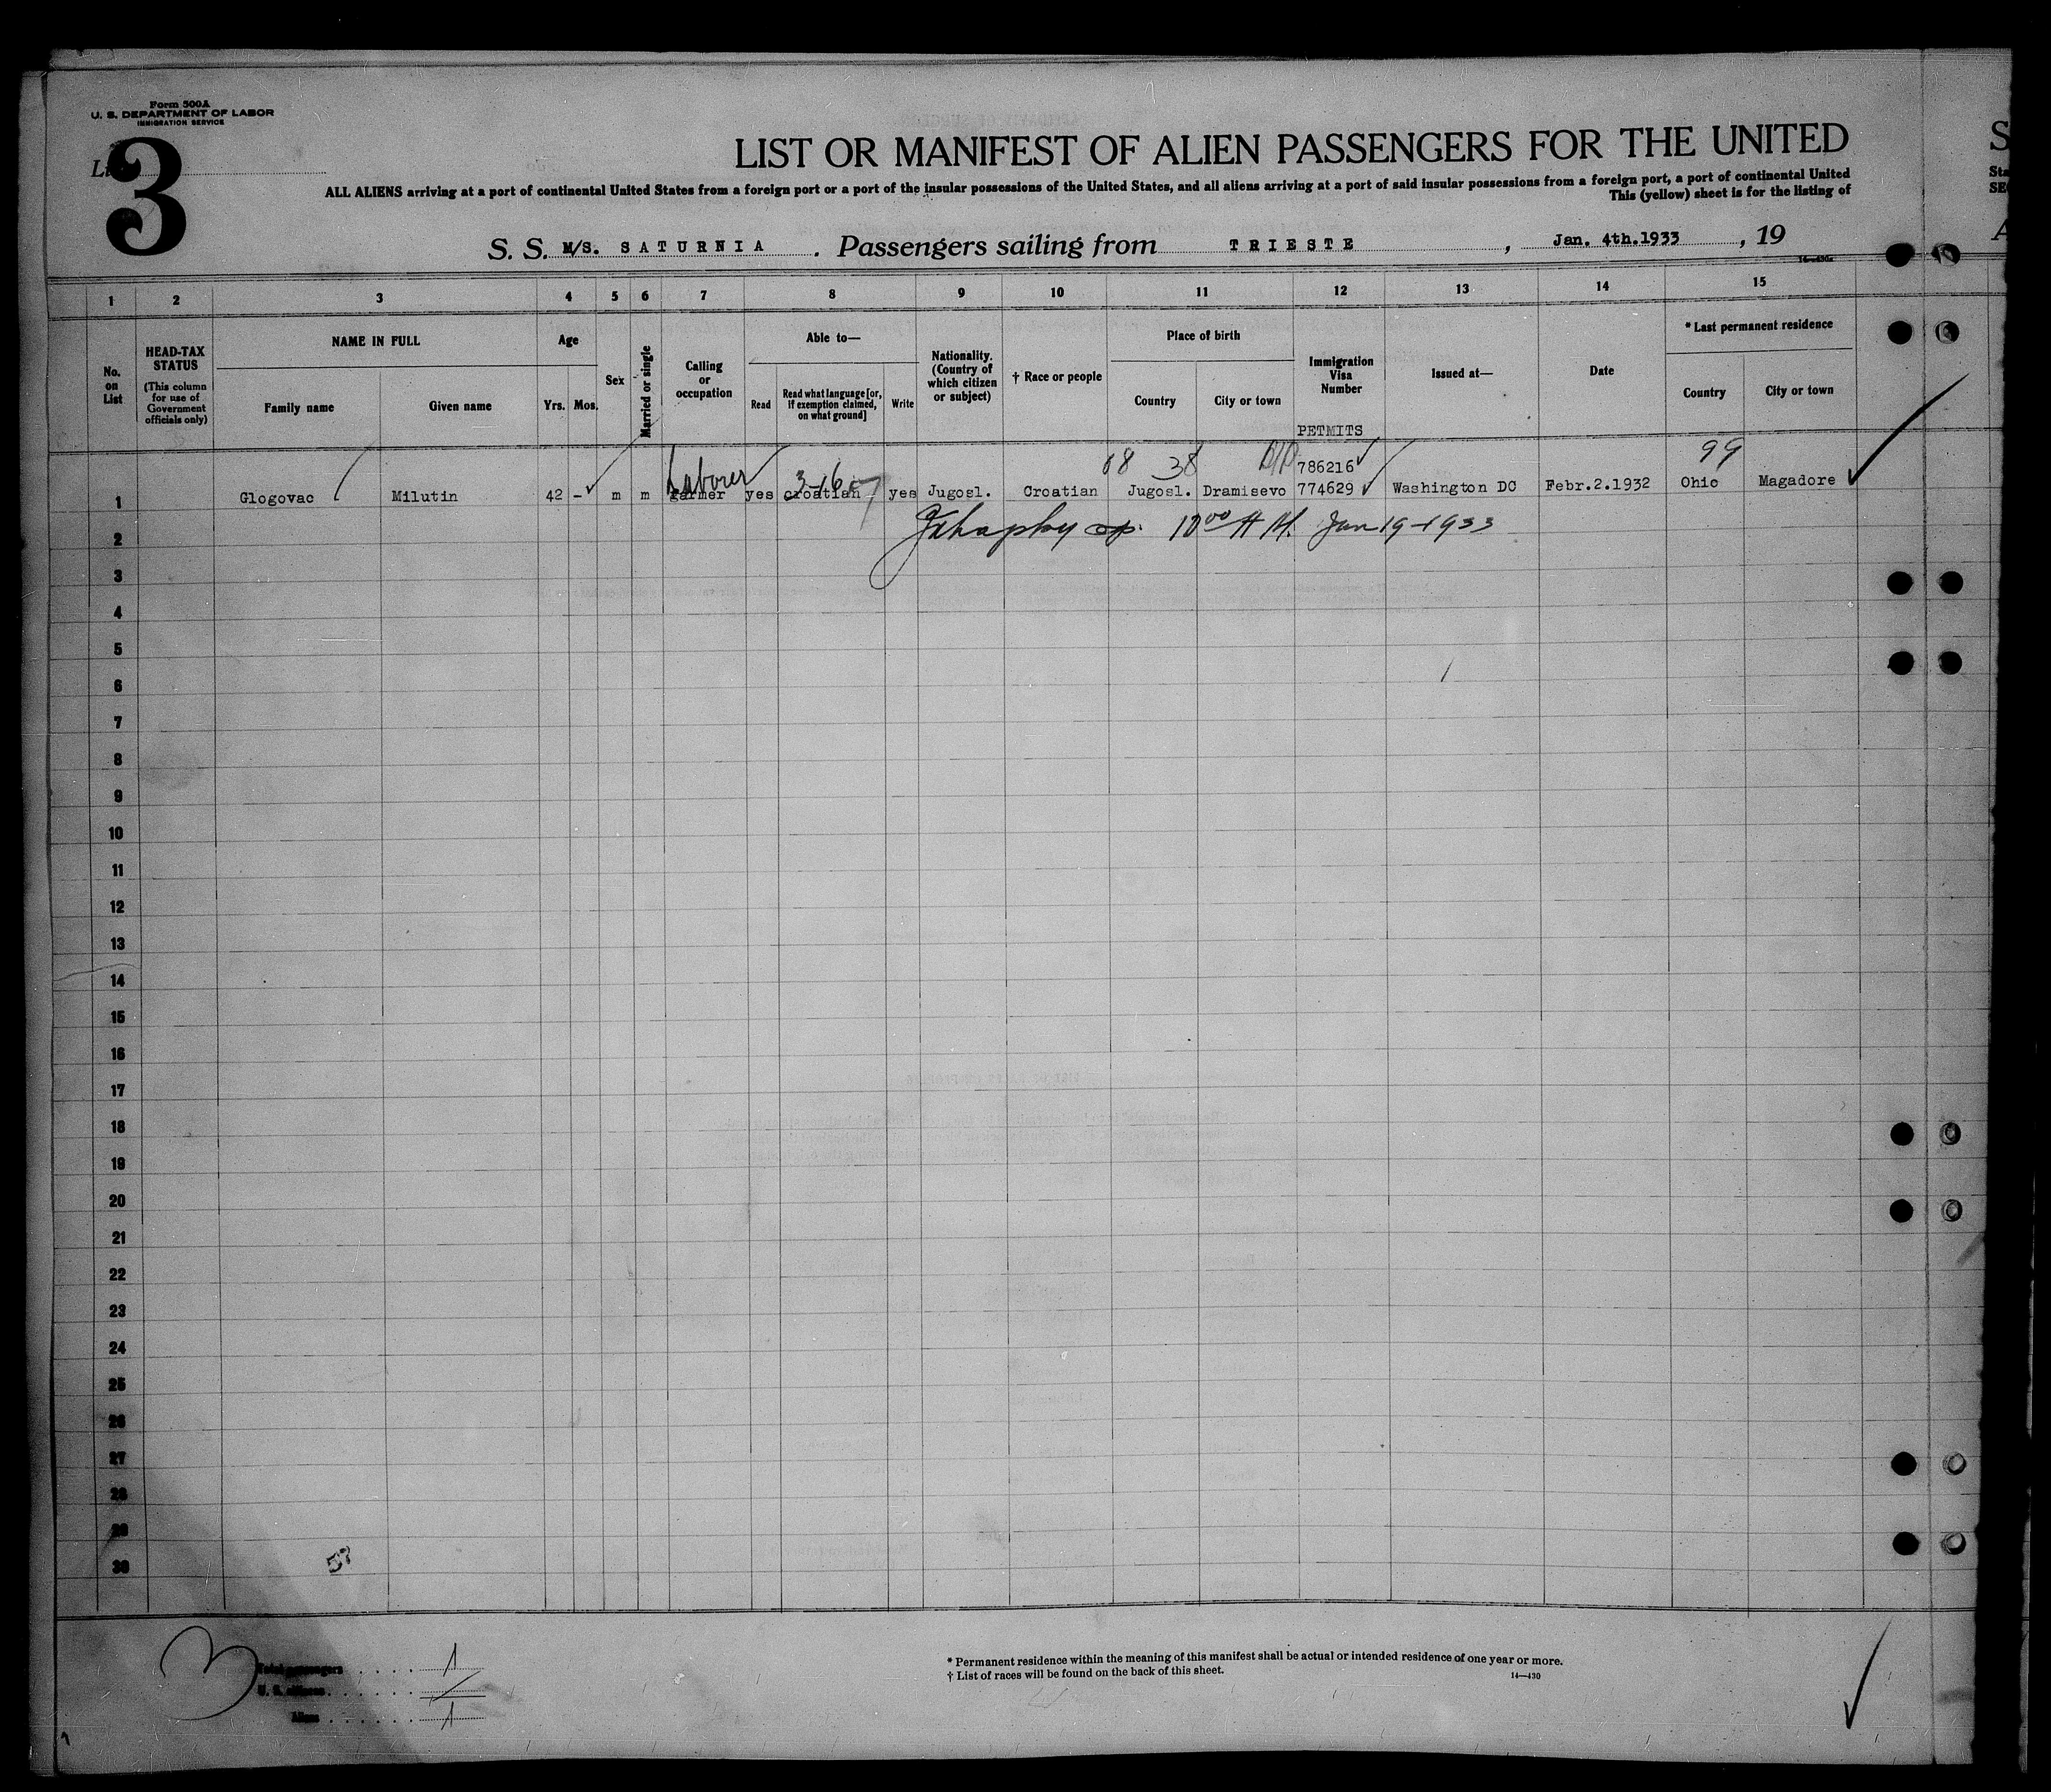 Form 500A
U. S. DEPARTMENT OF LABOR
IMMIGRATION SERVICE
3
LIST OR MANIFEST OF ALIEN PASSENGERS FOR THE UNITED
S
ALL ALIENS arriving at a port of continental United States from a foreign port or a port of the insular possessions of the United States, and all aliens arriving at a port of said insular possessions from a foreign port, a port of continental United
Sta
This (yellow) sheet is for the listing of
S. S. M/S. SATURNIA . Passengers sailing from TRIESTE , Jan. 4th.1933 , 19
1 2 3 4 5 6 7 8 9 10 11 12 13 14 15
No. on List
HEAD-TAX STATUS (This column for use of Government officials only)
NAME IN FULL
Family name Given name
Age
Yrs. Mos.
Sex
Married or single
Calling or occupation
Able to—
Read
Read what language [or, if exemption claimed, on what ground]
Write
Nationality. (Country of which citizen or subject)
† Race or people
Place of birth
Country City or town
Immigration Visa Number
PETMITS
Issued at—
Date
* Last permanent residence
Country City or town
Laborer 3-16 68 38 786216 99
1 Glogovac Milutin 42 - m m farmer yes croatian yes Jugosl. Croatian Jugosl. Dramisevo 774629 Washington DC Febr.2.1932 Ohio Magadore
2 10 00 A M. Jan 19-1933
3
4
5
6
7
8
9
10
11
12
13
14
15
16
17
18
19
20
21
22
23
24
25
26
27
28
29
30
Total passengers 1
U. S. citizens /
Aliens 1
* Permanent residence within the meaning of this manifest shall be actual or intended residence of one year or more.
† List of races will be found on the back of this sheet.
14—430